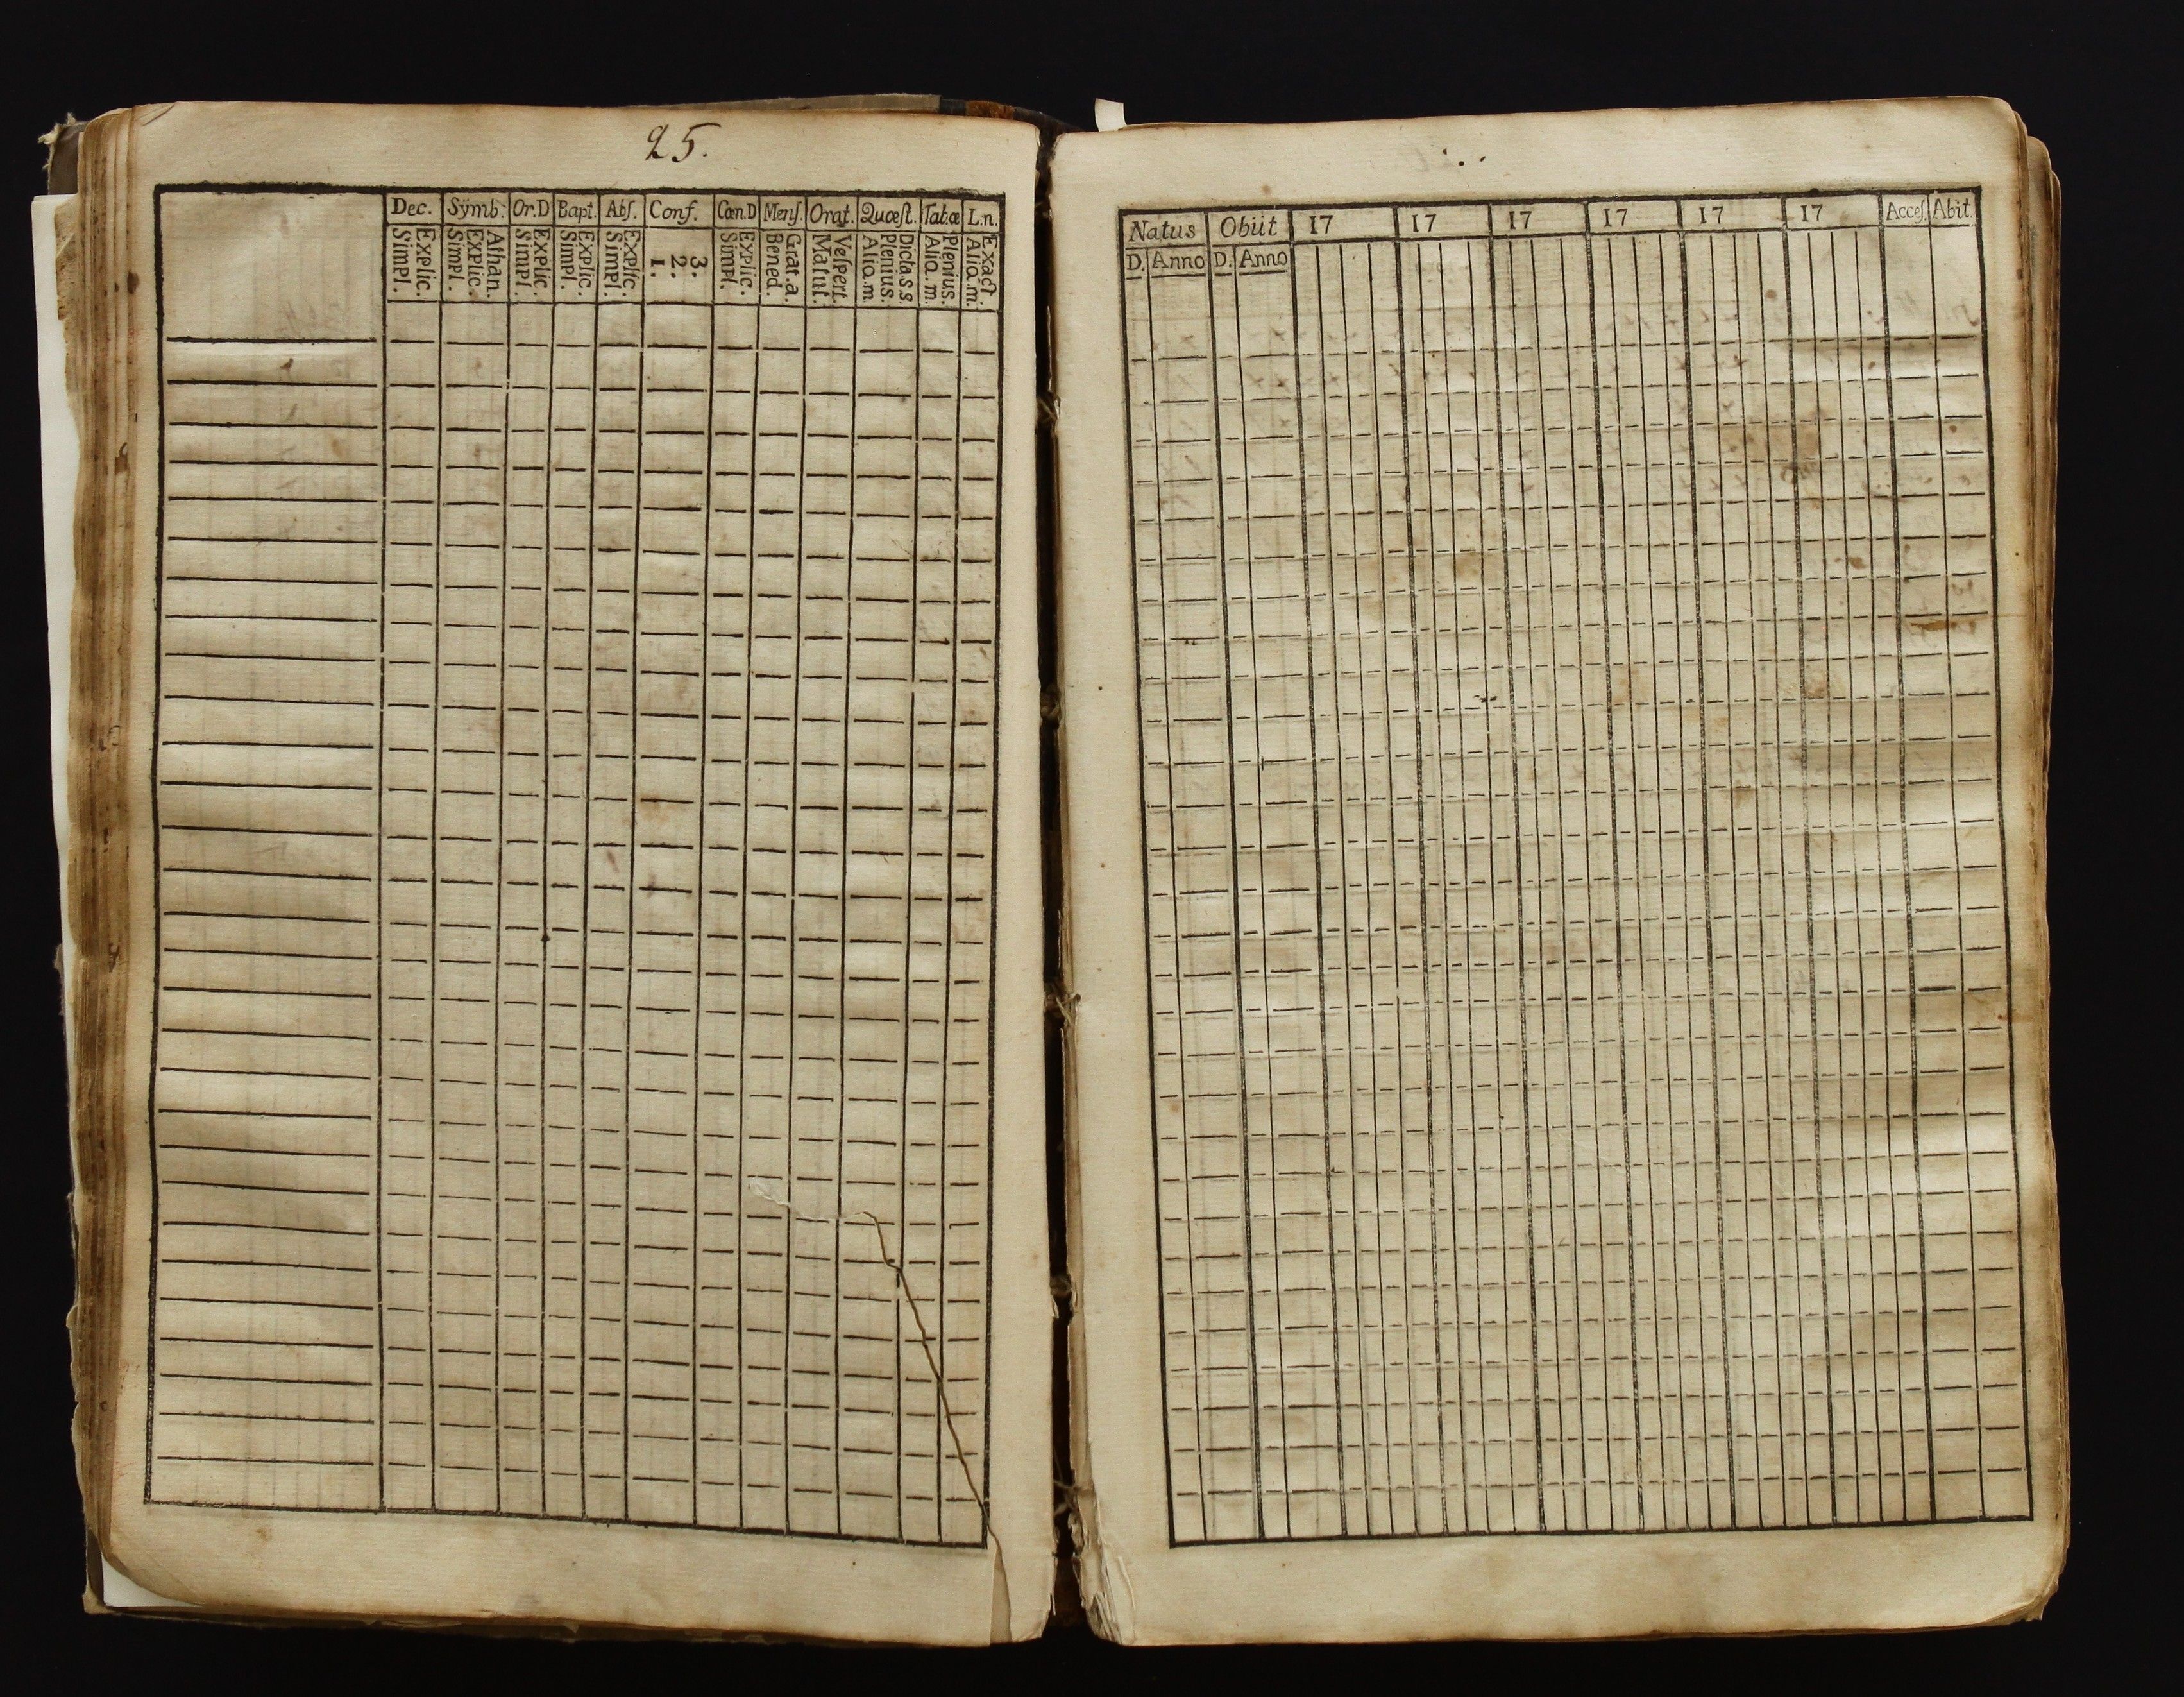 25.
Dec. Sÿmb. Or.D Bapt. Abſ. Conf. Cœn.D Menſ. Orat. Quæſt. Tab.æ L.n.
Explic.
Simpl.
Athan.
Explic.
Simpl.
Explic.
Simpl.
Explic.
Simpl.
Explic.
Simpl.
3.
2.
1.
Explic.
Simpl.
Grat. a.
Bened.
Veſpert.
Matut.
Dicta.s.s.
Plenius.
Aliq.m.
Plenius.
Aliq.m.
Exact.
Aliq.m.
Natus Obiit 17 17 17 17 17 17 Acceſ. Abit.
D. Anno D. Anno